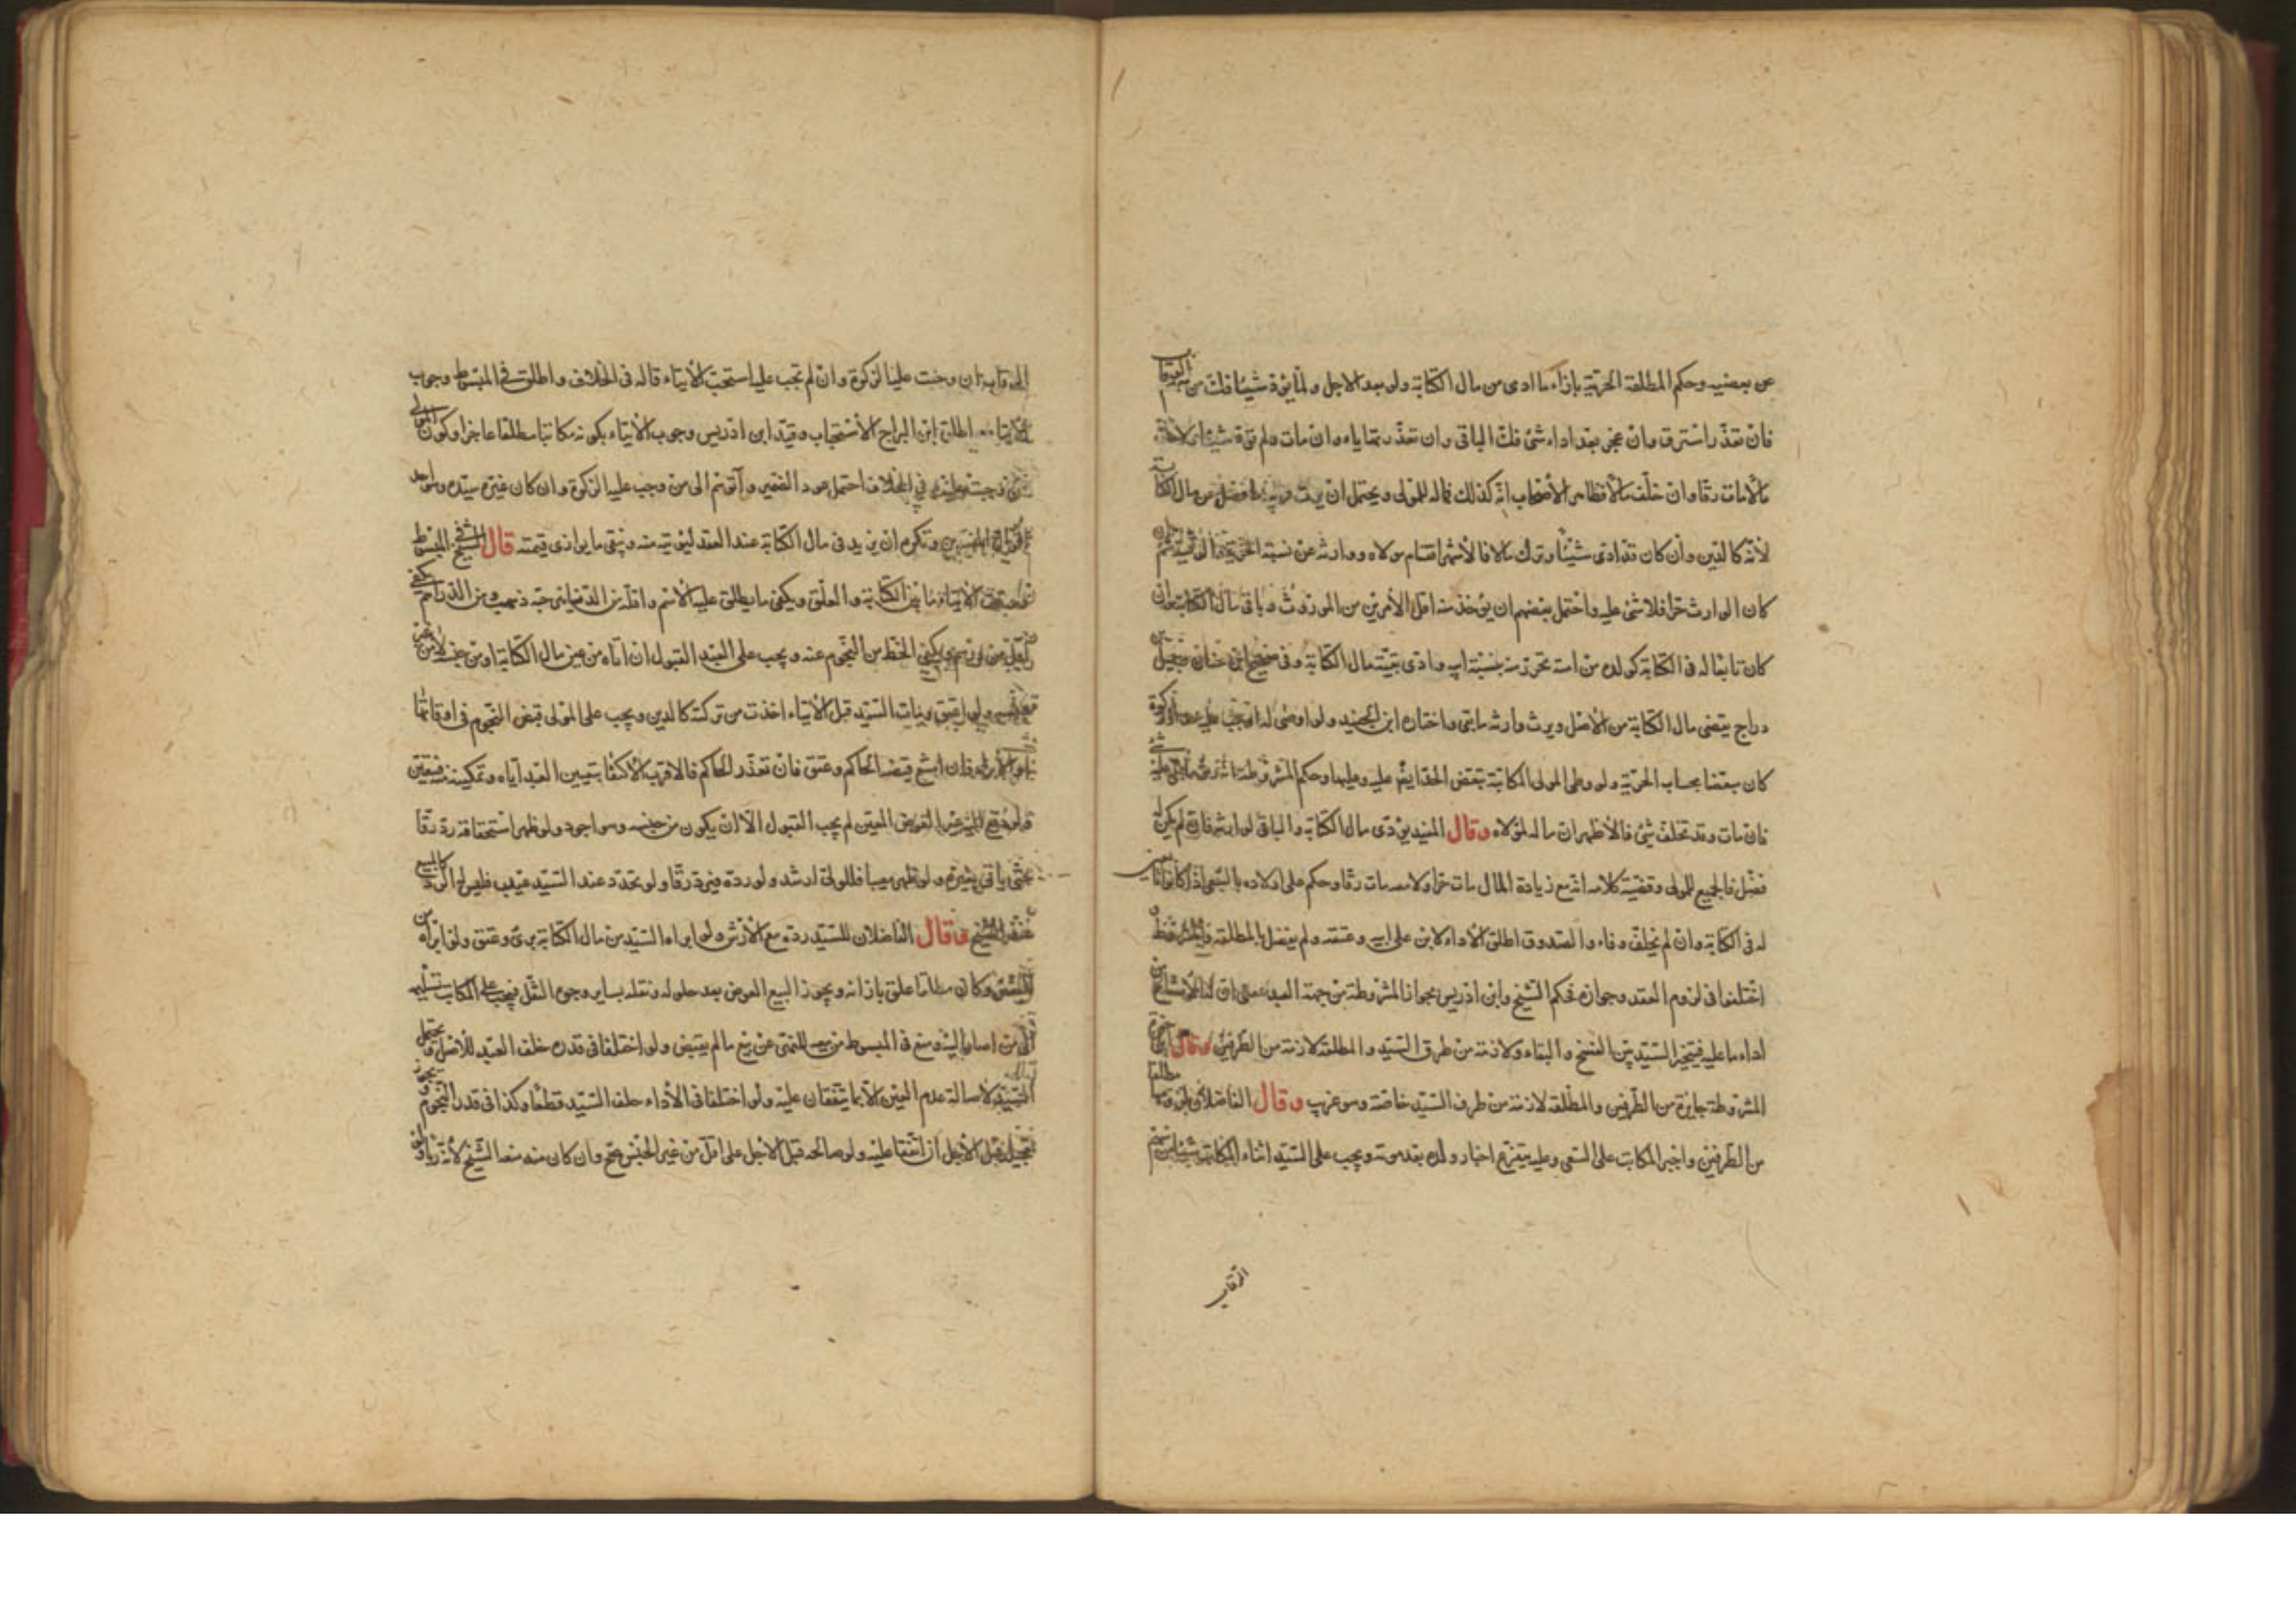 عن بعضه وحكم المطلقة الحرية بازاء ما ادى من مال الكتابة ولو بعد الاجل ولما يؤد شيئا فك من سهم الرقاب
فان تعذر استرق وان عجز بعد اداء شئ فك الباقى وان تعذر بقاياه وان مات ولم يؤد شيئا
مالا مات رقا وان خلف مالا فظاهر الاصحاب انه كذلك فماله للمولى ويحتمل ان يرث قريبه ما فضل من مال الكتابة
لانه كالدين وان كان قد ادى شيئا وترك مالا فالاشهر اقتسام مولاه ووارثه عن نسبة الحرية والرقية ثم
كان الوارث حرا فلا شئ عليه واحتمل بعضهم ان يؤخذ منه اقل الامرين من الموروث وباقى مال الكتابة وان
كان تابعا له فى الكتابة كولده من امته تحرر منه بنسبة ابيه وادى بقية مال الكتابة وفى صحيح ابن سنان وجميل بن
دراج يقضى مال الكتابة من الاصل ويرث وارثه ما بقى واختاره ابن الجنيد ولو اوصى له او وجب عليه حد او زكوة
كان مبعضا بحساب الحرية ولو وطى المولى المكاتبة تبعض الحد عليه وعليها وحكم المشروطة انه رق ما بقى عليه شئ
فان مات وقد تخلف شئ فالاظهر ان ماله لمولاه وقال المفيد يؤدى مال الكتابة والباقى لوارثه فان لم يكن
فضل فالجميع للمولى وقضية كلامه انه مع زيادة المال مات حرا ولا معه مات رقا وحكم على اولاده بالسعى اذا كانوا تابعين
له فى الكتابة وان لم يخلف وفاء والصدوق اطلق الاداء لابن على ابيه وعتقه ولم يفصل بالمطلقة والمشروطة
اختلفوا فى لزوم العقد وجوازه فحكم الشيخ وابن ادريس بجواز المشروطة من جهة العبد بمعنى ان له الامتناع من
اداء ما عليه فيتخير السيد بين الفسخ والبقاء ولازمة من طرف السيد والمطلقة لازمة من الطرفين وقال ابن حمزة
المشروطة جايزة من الطرفين والمطلقة لازمة من طرف السيد خاصة وهو غريب وقال الفاضلان بلزومها مطلقا
من الطرفين واجبر المكاتب على السعى وعليه يتفرع اجبار ولده بعد موته ويجب على السيد ايتاء المكاتب شيئا من سهم
الرقاب
الرقاب ان وجبت عليه الزكوة وان لم تجب عليه استحب الايتاء قاله فى الخلاف واطلق فى المبسوط وجوب
الايتاء واطلق ابن البراج الاستحباب وقيد ابن ادريس وجوب الايتاء بكونه مكاتبا مطلقا عاجزا وكون المولى
ممن وجبت عليه وفى الخلاف احتمل عود الضمير وآتوهم الى من وجب عليه الزكوة وان كان غير سيده وهو احد
اقوال المفسرين وتكره ان يزيد فى مال الكتابة عند العقد ليؤتيه منه ويبقى ما يوازى قيمته قال الشيخ فى المبسوط
وقت الايتاء ما بين الكتابة والعتق ويكفى ما يطلق عليه الاسم واقله من الدنانير حبة ذهب ومن الدراهم
اقل من درهم ويكفى الحط من النجوم عنه ويجب على العبد القبول ان اتاه من عين مال الكتابة او من جنسه لا من غير
ولو اعتق ومات السيد قبل الايتاء اخذت من تركته كالدين ويجب على المولى قبض النجوم فى اوقاتها
او الابراء فان امتنع قبضه الحاكم وعتق فان تعذر الحاكم فالاقرب الاكتفاء بتعيين العبد اياه وتمكينه فيعتق
ولو دفع اليه غير العوض المعين لم يجب القبول الا ان يكون من جنسه وهو اجود ولو ظهر استحقاقه رد رقا
حتى ياتى بغيره ولو ظهر معيبا فللمولى ارشه ولو رده فيرد رقا ولو تجدد عند السيد عيب فليس له الرد كالبيع
عند الشيخ وقال الفاضلان للسيد رده مع الارش ولو ابراه السيد من مال الكتابة برئ وعتق ولو ابراه من
البعض وكان مطلقا عتق بازائه ويجوز البيع العوض بعد حلوله ونقله بساير وجوه النقل فيجب على المكاتب تسليمه
الى من اصار اليه ومنع فى المبسوط من بيعه للنهى عن بيع ما لم يقبض ولو اختلفا فى قدره حلف العبد للاصل ويحتمل
السيد لاصالة عدم العتق الا بما يتفقان عليه ولو اختلفا فى الاداء حلف السيد قطعا وكذا فى قدر النجوم ويجوز
تعجيل قبل الاجل ان اتفقا عليه ولو صالحه قبل الاجل على اقل من غير الجنس صح وان كان منه منعه الشيخ لانه ربا